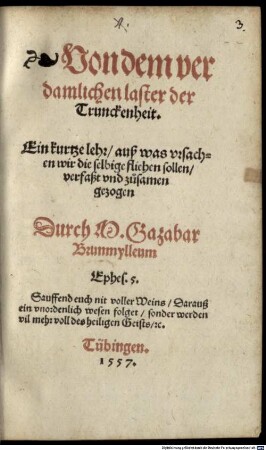 3.
Von dem ver
damlichen laster der
Trunckenheit.
Ein kurtze lehr/ auß was vrsach-
en wir die selbige fliehen sollen/
verfaßt vnd zůsamen
gezogen
Durch M. Gazabar
Brunmylleum
Ephes. 5.
Sauffend euch nit voller Weins/ Darauß
ein vnordenlich wesen folget/ sonder werden
vil mehr voll des heiligen Geists/ꝛc.
Tübingen.
1557.